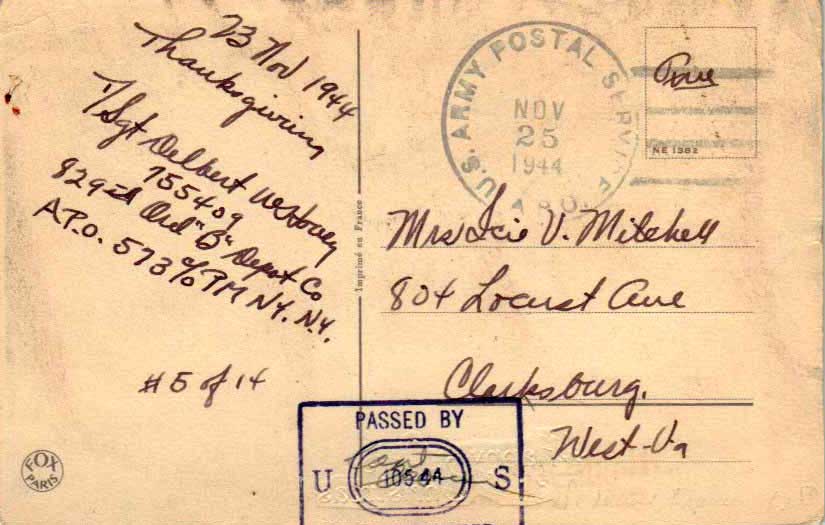 23 Nov 1944
Thanksgiving
T/Sgt Delbert
755409
829th Ord "B" Depot Co
A.P.O. 573 % PM N.Y. N.Y.
#5 of 14
FOX
PARIS
Imprimé en France
U.S. ARMY POSTAL SERVICE
NOV
25
1944
A.P.O.
Free
NE 1382
Mrs Icie V. Mitchell
804 Locust Ave
Clarksburg,
West-Va
PASSED BY
U 10544 S